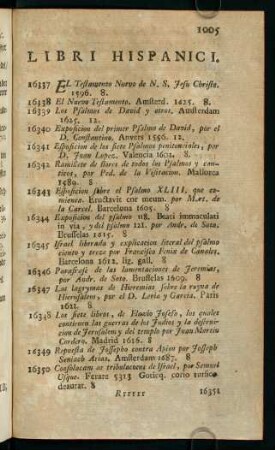 1005
LIBRI HISPANICI.
16337 EL Testamento Nuevo de N. S. Jesu Christo.
1596. 8.
16338 El Nuevo Testamento. Amsterd. 1625. 8.
16339 Los Psalmos de David y otros. Amsterdam
1625. 12.
16340 Exposicion del primer Psalmo de David, por el
D. Constantino. Anvers 1556. 12.
16341 Exposicion de los siete Psalmos penitenciales, por
D. Juan Lopez. Valencia 1602. 8.
16342 Ramillete de flores de todos los Psalmos y canticos, por Ped. de la Visitacion. Mallorca
1589. 8
16343 Exposicion sobre el Psalmo XLIII, que comienca. Eructavit cor meum. por M. de
la Carcel. Barcelona 1605. 8
16344 Exposicion del psalmo 118. Beati immaculati
in via, y del psalmo 121. por Andr. de Soto.
Brusselas 1615. 8
16345 Israel librada y explicacion literal del psalmo
ciento y treze por Francisco Fenix de Canales.
Barcelona 1612. lig. gall. 8
16346 Parafrasis de las lamentaciones de Jeremias,
por Andr. de Soto. Brusselas 1609. 8
16347 Las lagrymas de Hieremias sobre la ruyna de
Hierusalem, por el D. Loris y Garcia. Paris
1621. 8
16348 Los siete libros, de Flavio Josefo, los quales
contienen las guerras de los Judios y la destrucion de Jerusalem y del templo por Juan Martin
Cordero. Madrid 1616. 8
16349 Repuesta de Josepho contra Apion por Joseph
Semiach Arias. Amsterdam 1687. 8
16350 Consolacam as tribulacoens de Israel, por Samuel
Usque. Ferare 5313 Goticq. corio
deaurat. 8
16351